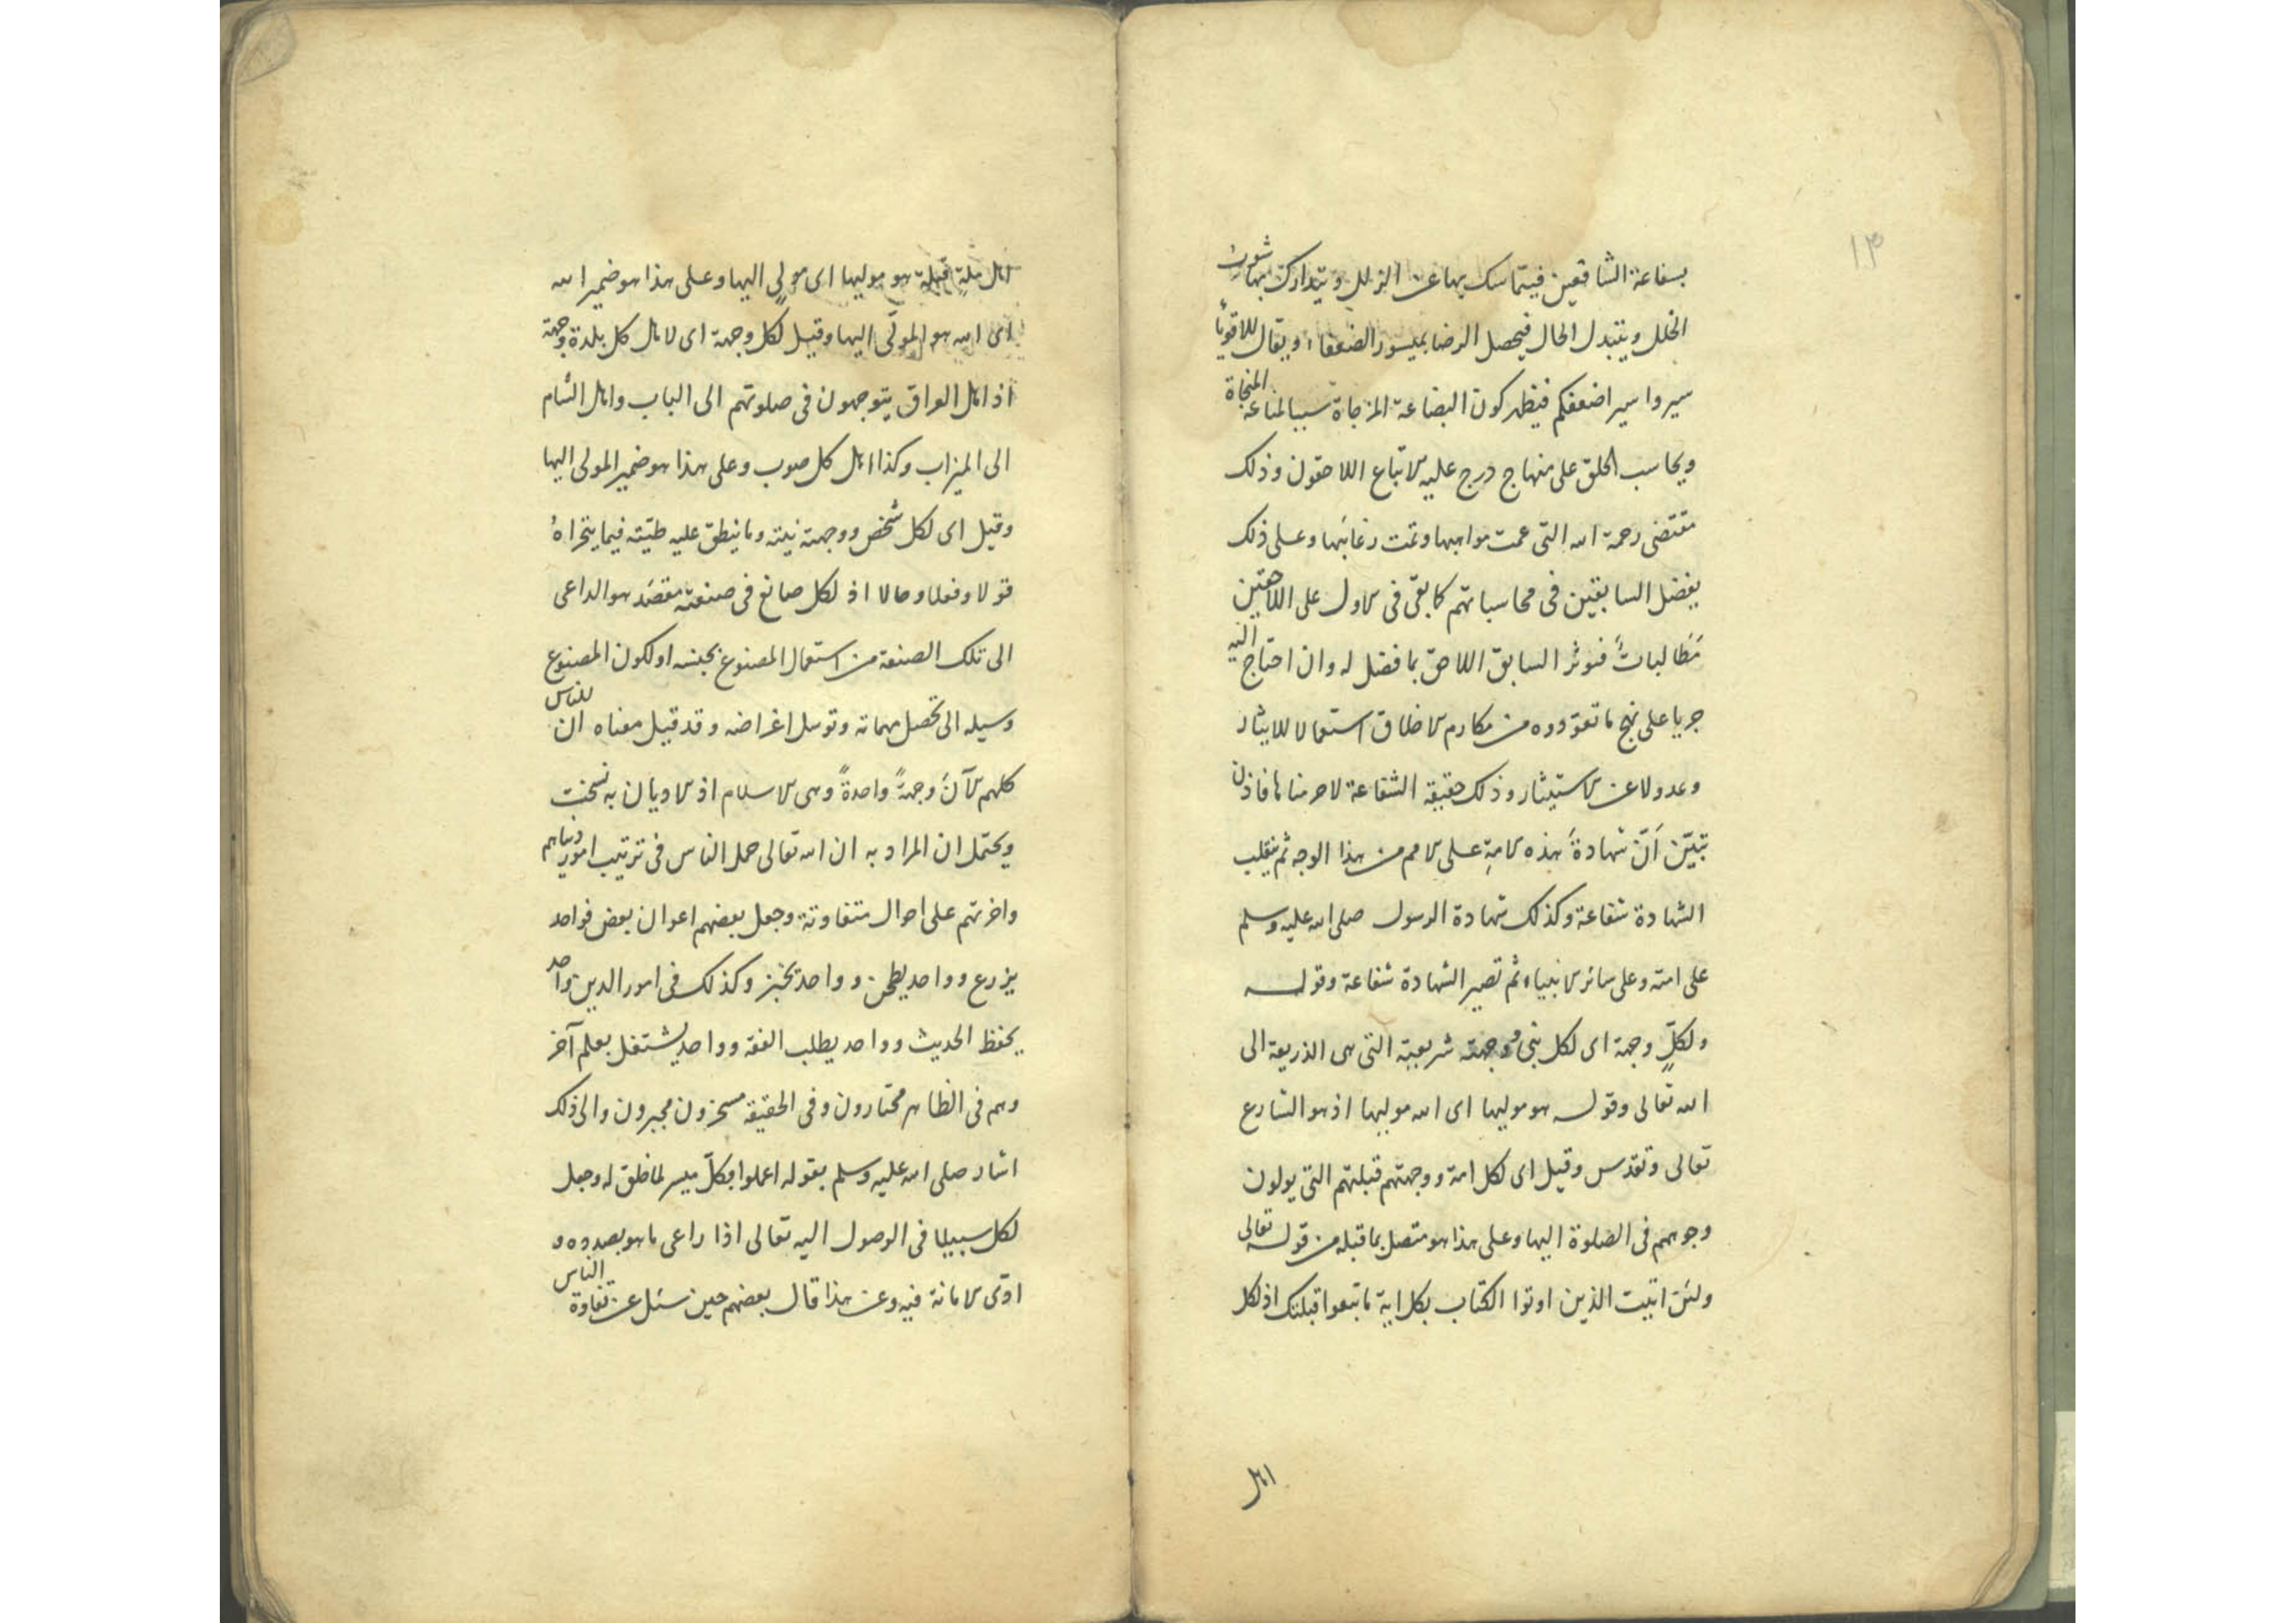 ١٣
بشفاعة الشافعين فيتماسك بها عن الزلل ويتدارك بها شوب
الخلل ويتبدل الحال فيحصل الرضا بميسور الضعفاء ويقال للاقويا
سيروا سير اضعفكم فيظهر كون البضاعة المزجاة سببا لمناعة المنجاة
ويحاسب الخلق على منهاج درج عليه الاتباع اللاحقون وذلك
مقتضى رحمة الله التى عمت مواهبها وتمت رغائبها وعلى ذلك
يفضل السابقين فى محاسباتهم كا بقى فى الاول على اللاحقين
مطالبات فنوثر السابق اللاحق بما فضل له وان احتاج اليه
جريا على نهج ما تعوّدوه من مكارم الاخلاق استعمالا للايثار
وعدولا عن الاستيثار وذلك حقيقة الشفاعة لاحرمناها فاذن
تبيّن اَنّ شهادةَ هذه الامةِ على الامم من هذا الوجه ثم ينقلب
الشهادة شفاعة وكذلك شهادة الرسول صلى الله عليه وسلم
على امته وعلى سائر الانبياء ثم تصير الشهادة شفاعة وقوله
ولكلٍّ وجهة اى لكل نبى ووجهته شريعته التى هى الذريعة الى
الله تعالى وقوله هو موليها اى الله موليها اذ هو الشارع
تعالى وتقدس وقيل اى لكل امة ووجهتهم قبلتهم التى يولون
وجوههم فى الصلوة اليها وعلى هذا هو متصل بما قبله من قوله تعالى
ولئن اتيت الذين اوتوا الكتاب بكل اية ما تبعوا قبلتك اذ لكل
اهل
اهل ملةٍ قبلة هو موليها اى مولٍى اليها وعلى هذا هو ضمير الله
اى الله هو المولّى اليها وقيل لكل وجهة اى لاهل كل بلدة وجهة
اذ اهل العراق يتوجهون فى صلوتهم الى الباب واهل الشام
الى الميزاب وكذا اهل كل صوب وعلى هذا هو ضمير المولى اليها
وقيل اى لكل شخص ووجهته نيته وما ينطق عليه طيّته فيما يتحراهُ
قولا وفعلا وحالا اذ لكل صانع فى صنعته مقصَد هو الداعى
الى تلك الصنعة من استعمال المصنوع بجنسه او لكون المصنوع
وسيله الى تحصل مهماته وتوسل اغراضه وقد قيل معناه ان للناس
كلهم الآنَ وجهةً واحدةً وهى الاسلام اذ الاديان به نسخت
ويحتمل ان المراد به ان الله تعالى حمل الناس فى ترتيب امور دنياهم
واخرتهم على احوال متفاوتة وجعل بعضهم اعوان بعض فواحد
يزرع وواحد يطحن وواحد يخبز وكذلك فى امور الدين واحد
يحفظ الحديث وواحد يطلب الفقه وواحد يشتغل بعلم آخر
وهم فى الظاهر مختارون وفى الحقيقة مسخرون مجبرون والى ذلك
اشار صلى الله عليه وسلم بقوله اعملوا فكلّ ميسر لما خلق له وجعل
لكل سبيلا فى الوصول اليه تعالى اذا راعى ما هو بصدده و
ادّى الامانة فيه وعن هذا قال بعضهم حين سئل عن تفاوة الناس